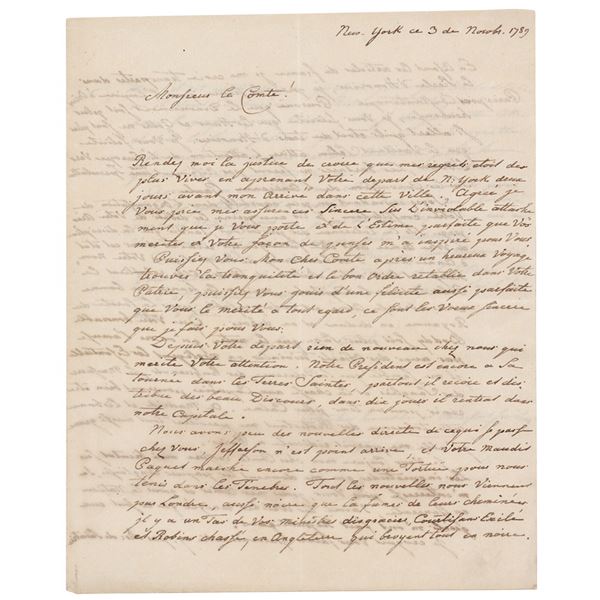 New. York ce 3 de Novbr. 1789
Monsieur le Comte!
Rendez moi la justice de croire que mes regrets etoit des
plus Vives en aprenant Votre depart de N. York deux
jours avant mon Arrivé dans cette Ville. Agreé je
Vous prie mes assurences Sincere sur L'inviolable attache
ment que je Vous porte et de L'Estime parfaite que Vos
merites et Votre façon de penser m'a inspiré pour Vous.
Puissiez Vous Mon Cher Comte après un heureux Voyage
trouver la tranquilité et le bon Ordre retablie dans Votre
Patrie, puissiez Vous jouir d'une felicité aussi parfaite
que Vous le merité a tout egard, ce sont les Voeux sincere
que je fais pour Vous.
Depuis Votre depart rien de nouveau chez nous qui
merite Votre attention. Notre President est encore a Sa
tournée dans les Terres Saintes, partout il recoie et dis
tribue des beau Discours, dans dix jours il rentrera dans
notre Capitale.
Nous avons peu des nouvelles directe de cequi se passe
chez Vous, Jefferson n'est point arrivé, et Votre maudit
Paquet marche encore comme une Tortue pour nous
tenir dans les Tenebres. Tout les nouvelles nous Viennent
par Londre, aussi noire que la fumée de leurs cheminées
il y a un Tas de Vos ministres disgraciés, Courtisans Exilé
et Robins chassé, en Angleterre qui broyent tout en noire.